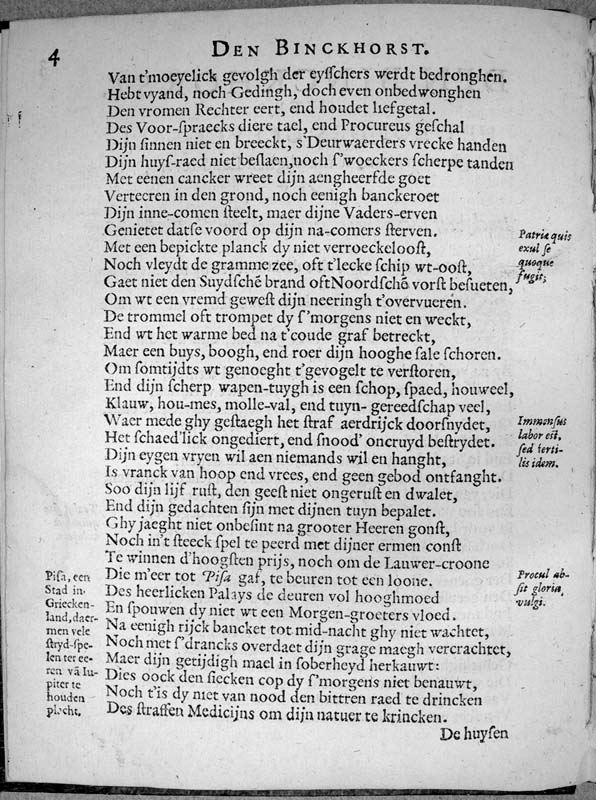 4
DEN BINCKHORST.
Van t'moeyelick gevolgh der eyſſchers werdt bedronghen.
Hebt vyand, noch Gedingh, doch even onbedwonghen
Den vromen Rechter eert, end houdet liefgetal.
Des Voor-ſpraecks diere tael, end Procureus geſchal
Dijn ſinnen niet en breeckt, s'Deurwaerders vrecke handen
Dijn huyſ-raed niet beſlaen, noch ſ'woeckers ſcherpe tanden
Met eenen cancker wreet dijn aengheerfde goet
Verteeren in den grond, noch eenigh banckeroet
Dijn inne-comen ſteelt, maer dijne Vaders-erven
Genietet datſe voord op dijn na-comers ſterven.
Met een bepickte planck dy niet verroeckelooſt,
Noch vleydt de gramme zee, oft t'lecke ſchip wt-ooſt,
Gaet niet den Suydſchē brand oft Noordſchē vorſt beſueten,
Om wt een vremd geweſt dijn neeringh t'overvueren.
De trommel oft trompet dy ſ'morgens niet en weckt,
End wt het warme bed na t'coude graf betreckt,
Maer een buys, boogh, end roer dijn hooghe ſale ſchoren.
Om ſomtijdts wt genoeght t'gevogelt te verſtoren,
End dijn ſcherp wapen-tuygh is een ſchop, ſpaed, houweel,
Klauw, hou-mes, molle-val, end tuyn-gereedſchap veel,
Waer mede ghy geſtaegh het ſtraf aerdrijck doorſnydet,
Het ſchaed'lick ongediert, end ſnood' oncruyd beſtrydet.
Dijn eygen vryen wil aen niemands wil en hanght,
Is vranck van hoop end vrees, end geen gebod ontfanght.
Soo dijn lijf ruſt, den geeſt niet ongeruſt en dwalet,
End dijn gedachten ſijn met dijnen tuyn bepalet.
Ghy jaeght niet onbeſint na grooter Heeren gonſt,
Noch in't ſteeck ſpel te peerd met dijner ermen conſt
Te winnen d'hoogſten prijs, noch om de Lauwer-croone
Die m'eer tot Piſa gaf, te beuren tot een loone.
Des heerlicken Palays de deuren vol hooghmoed
En ſpouwen dy niet wt een Morgen-groeters vloed.
Na eenigh rijck bancket tot mid-nacht ghy niet wachtet,
Noch met ſ'drancks overdaet dijn grage maegh vercrachtet,
Maer dijn getijdigh mael in ſoberheyd herkauwt:
Dies oock den ſiecken cop dy ſ'morgens niet benauwt,
Noch t'is dy niet van nood den bittren raed te drincken
Des ſtraffen Medicijns om dijn natuer te krincken.
De huyſen
Patriæ quis
exul ſe
quoque
fugit;
Immenſus
labor eſt,
ſed ferti-
lis idem.
Procul ab-
ſit gloria
vulgi.
Piſa, een
Stad in
Griecken-
land, daer-
men vele
ſtryd-ſpe-
len ter ee-
ren vā Iu-
piter te
houden
placht.